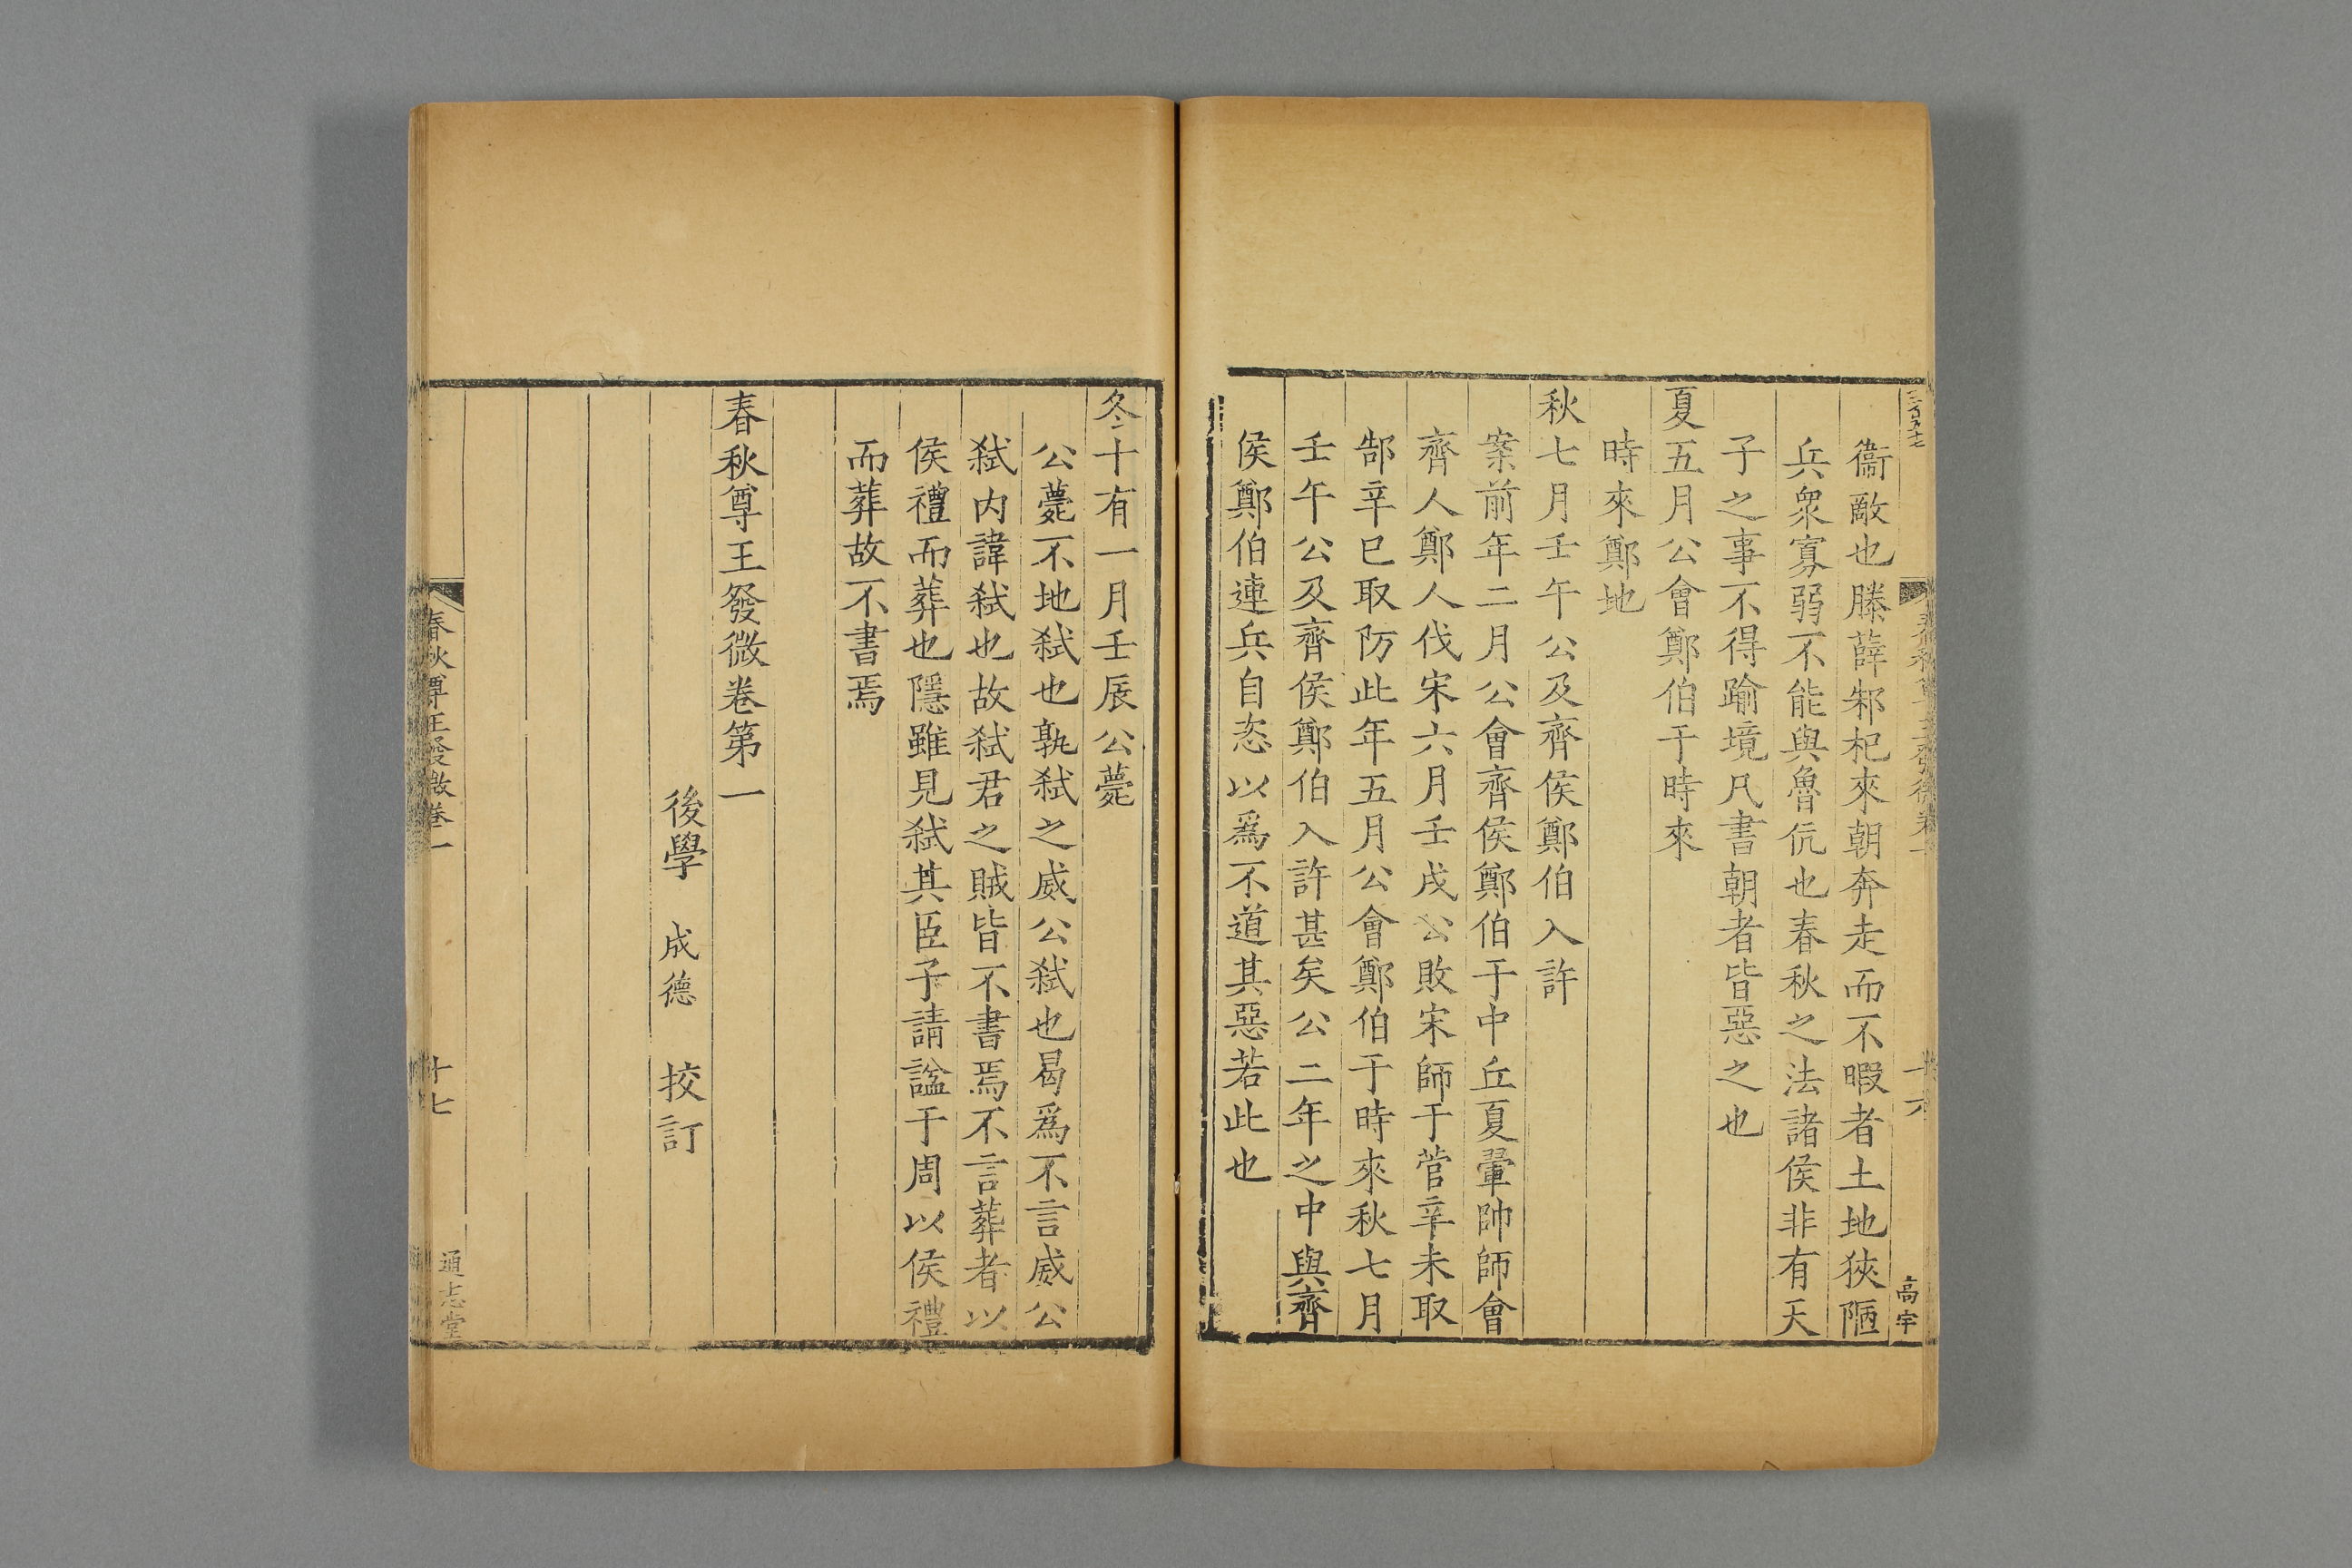 衞敵也滕薛邾杞來朝奔走而不暇者土地狹陋
兵衆寡弱不能與魯伉也春秋之法諸侯非有天
子之事不得踰境凡書朝者皆惡之也
夏五月公會鄭伯于時來
時來鄭地
秋七月壬午公及齊侯鄭伯入許
案前年二月公會齊侯鄭伯于中丘夏翬帥師會
齊人鄭人伐宋六月壬戌公敗宋師于菅辛未取
郜辛巳取防此年五月公會鄭伯于時來秋七月
壬午公及齊侯鄭伯入許甚矣公二年之中與齊
侯鄭伯連兵自恣以爲不道其惡若此也
高宇
冬十有一月壬辰公薨
公薨不地弑也孰弑之威公弑也曷爲不言威公
弑内諱弑也故弑君之賊皆不書焉不言葬者以
侯禮而葬也隱雖見弑其臣子請諡于周以侯禮
而葬故不書焉
春秋尊王發微卷第一
後學 成德 挍訂
春秋尊王發微卷一
十七
通志堂